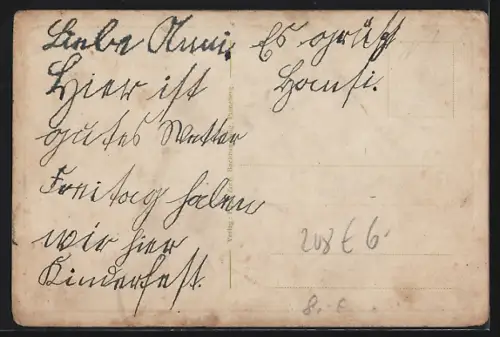 Liebe Anni.
Hier ist
gutes Wetter
Freitag haben
wir hier
Kinderfest.
Es grüßt
Hansi.
Verlag:
208 € 6.
8.- €